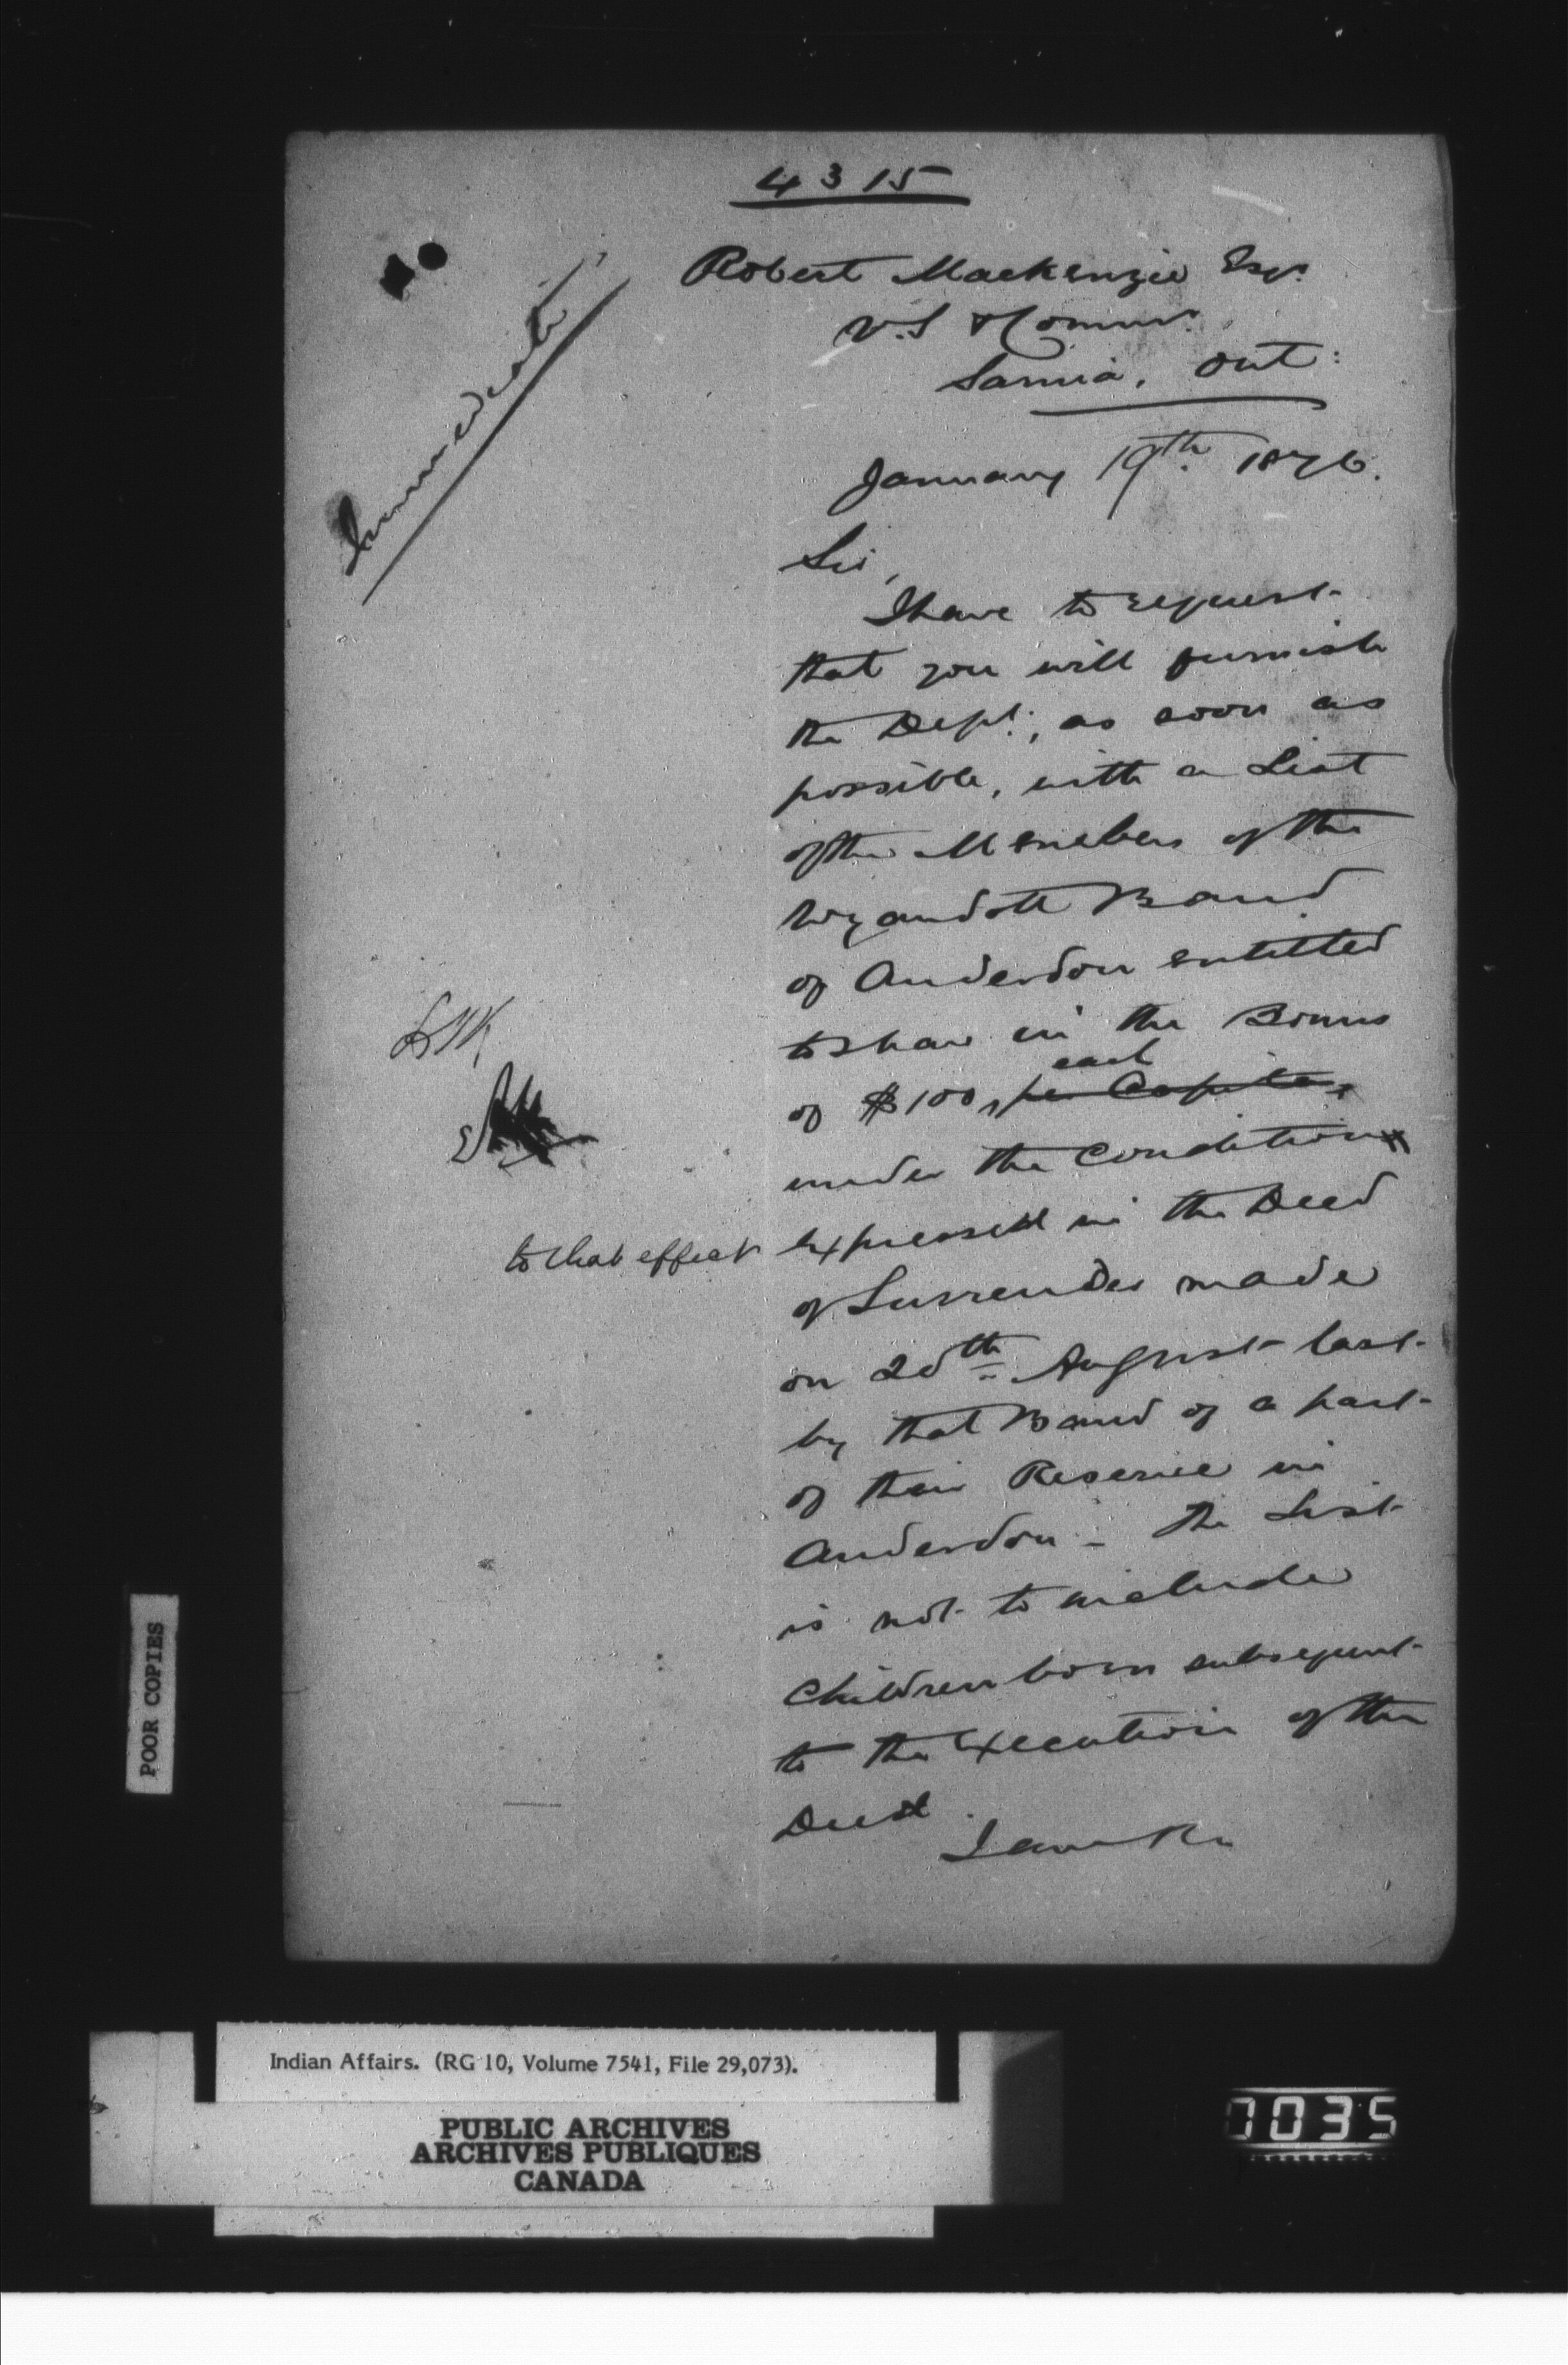 4315
Immediate
Robert Mackenzie Esqr.
V.S & Commr.
Sarnia, Ont:
January 19th 1876.
Sir,
I have to request
that you will furnish
the Dept:, as soon as
possible, with a List
of the Members of the
Wyandott Band
of Anderdon entitled
to share in the Bonus
each
of $100, per Capita,
under the Condition
to that effect expressed in the Deed
of Surrender made
on 20th August last
by that Band of a part
of their Reserve in
Anderdon - the List
is not to include
Children born subsequent
to the Execution of the
Deed.
I am
POOR COPIES
Indian Affairs. (RG 10, Volume 7541, File 29,073).
PUBLIC ARCHIVES
ARCHIVES PUBLIQUES
CANADA
0035